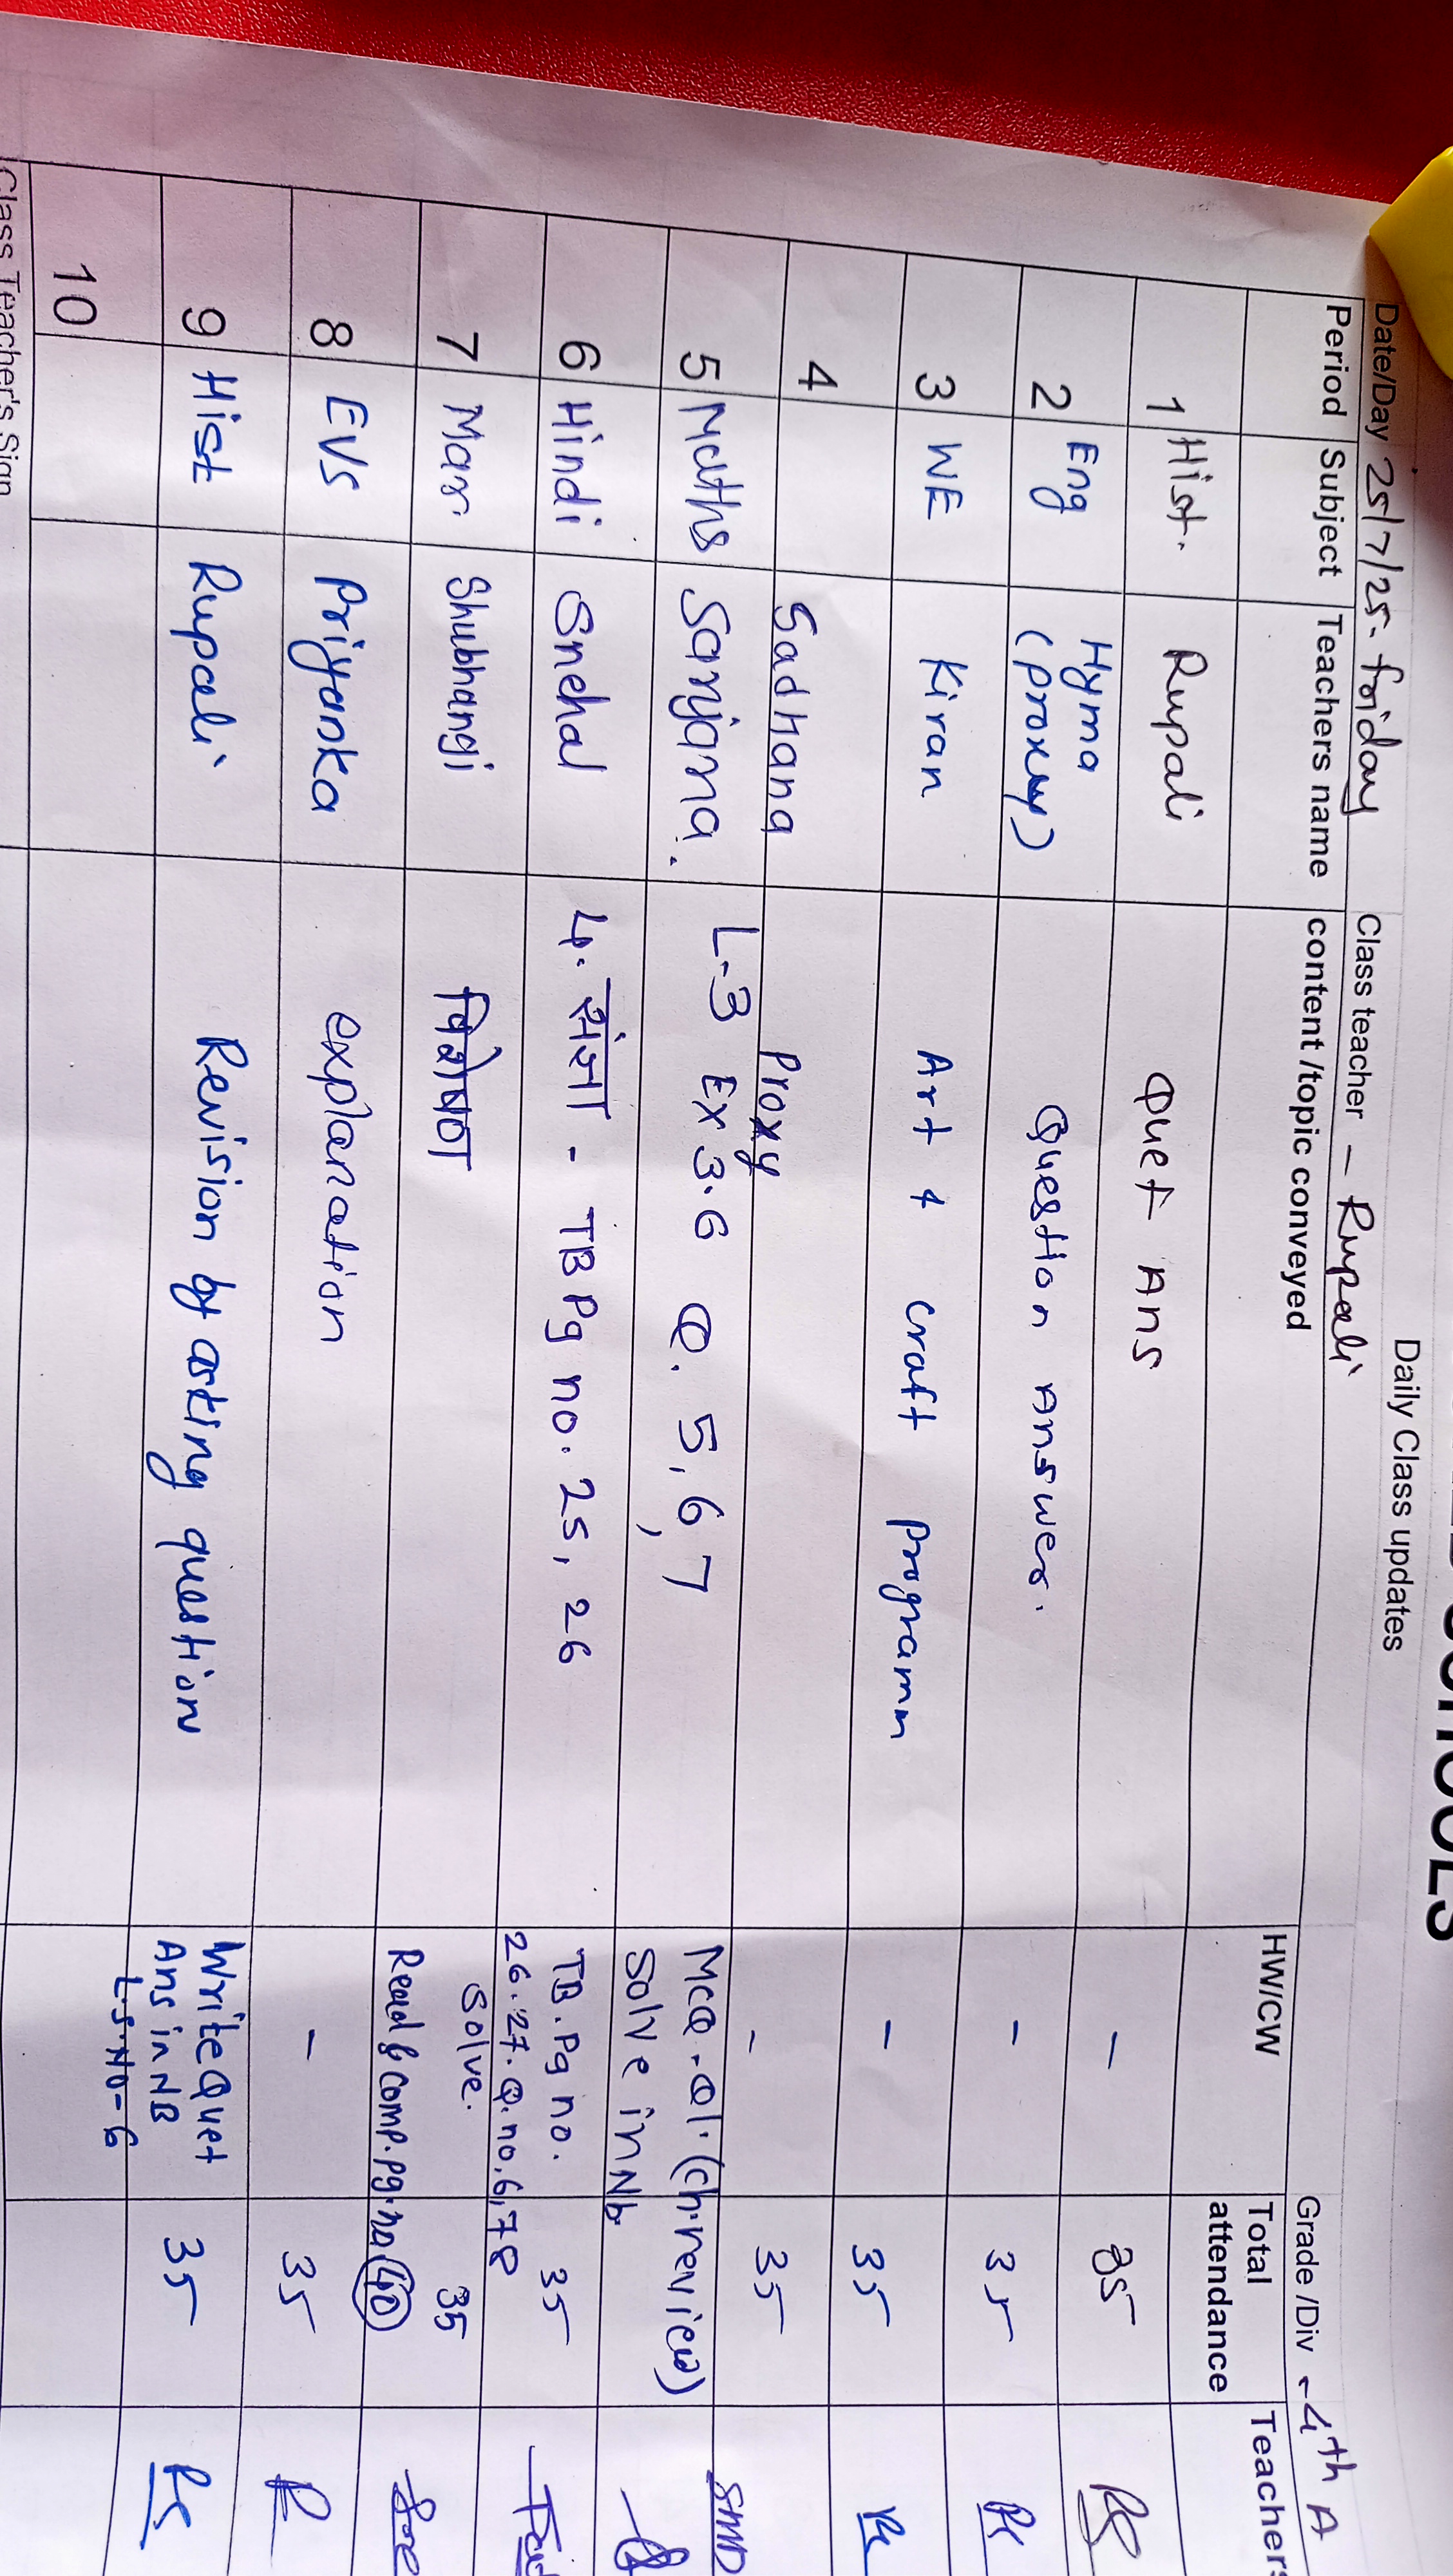 Daily Class updates
Date/Day 25/7/25. friday Class teacher – Rupali Grade /Div - 4th A
Period Subject Teachers name content /topic conveyed HW/CW Total attendance Teachers
1 Hist. Rupali Quet Ans – 35
2 Eng Hyma (proxy) Question Answer. – 35
3 WE Kiran Art & craft programm – 35
4 Sadhana Proxy - 35
5 Maths Sanjana. L-3 Ex 3.6 Q. 5, 6, 7 MCQ - Q1. (ch.review) Solve in Nb.
6 Hindi Snehal 4. संज्ञा - TB Pg no. 25, 26 TB. Pg no. 26.27. Q.no.6,7,8 Solve. 35
7 Mar. Shubhangi विशेषण Read & Comp. pg. no 40 35
8 EVS Priyanka explanation – 35
9 Hist Rupali Revision by asking question Write Quet Ans in NB L.S.NO-6 35
10
Class Teacher's Sign